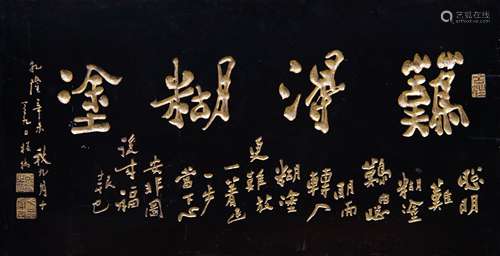 難得糊塗
聰明
難
糊塗
難由聰
明而
轉入
糊塗
更難放
一著退
一步
當下心
安非圖
後來福
報也
乾隆辛未秋九月十
有九日板橋
艺狐在线